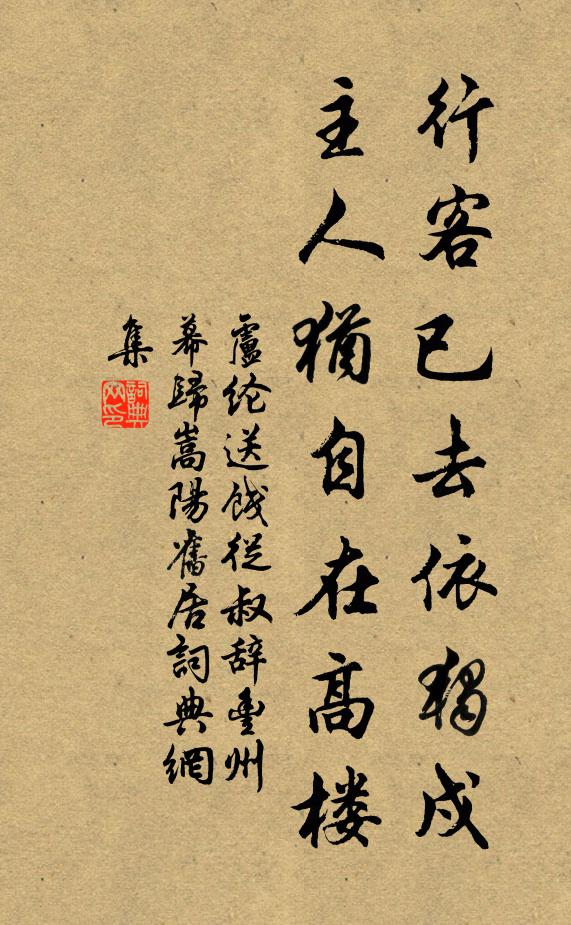 行客已去依獨戍
主人猶自在高楼
盧纶送饯從叔辞豊州
幕歸嵩陽舊居詞典網
集
詞典
网印